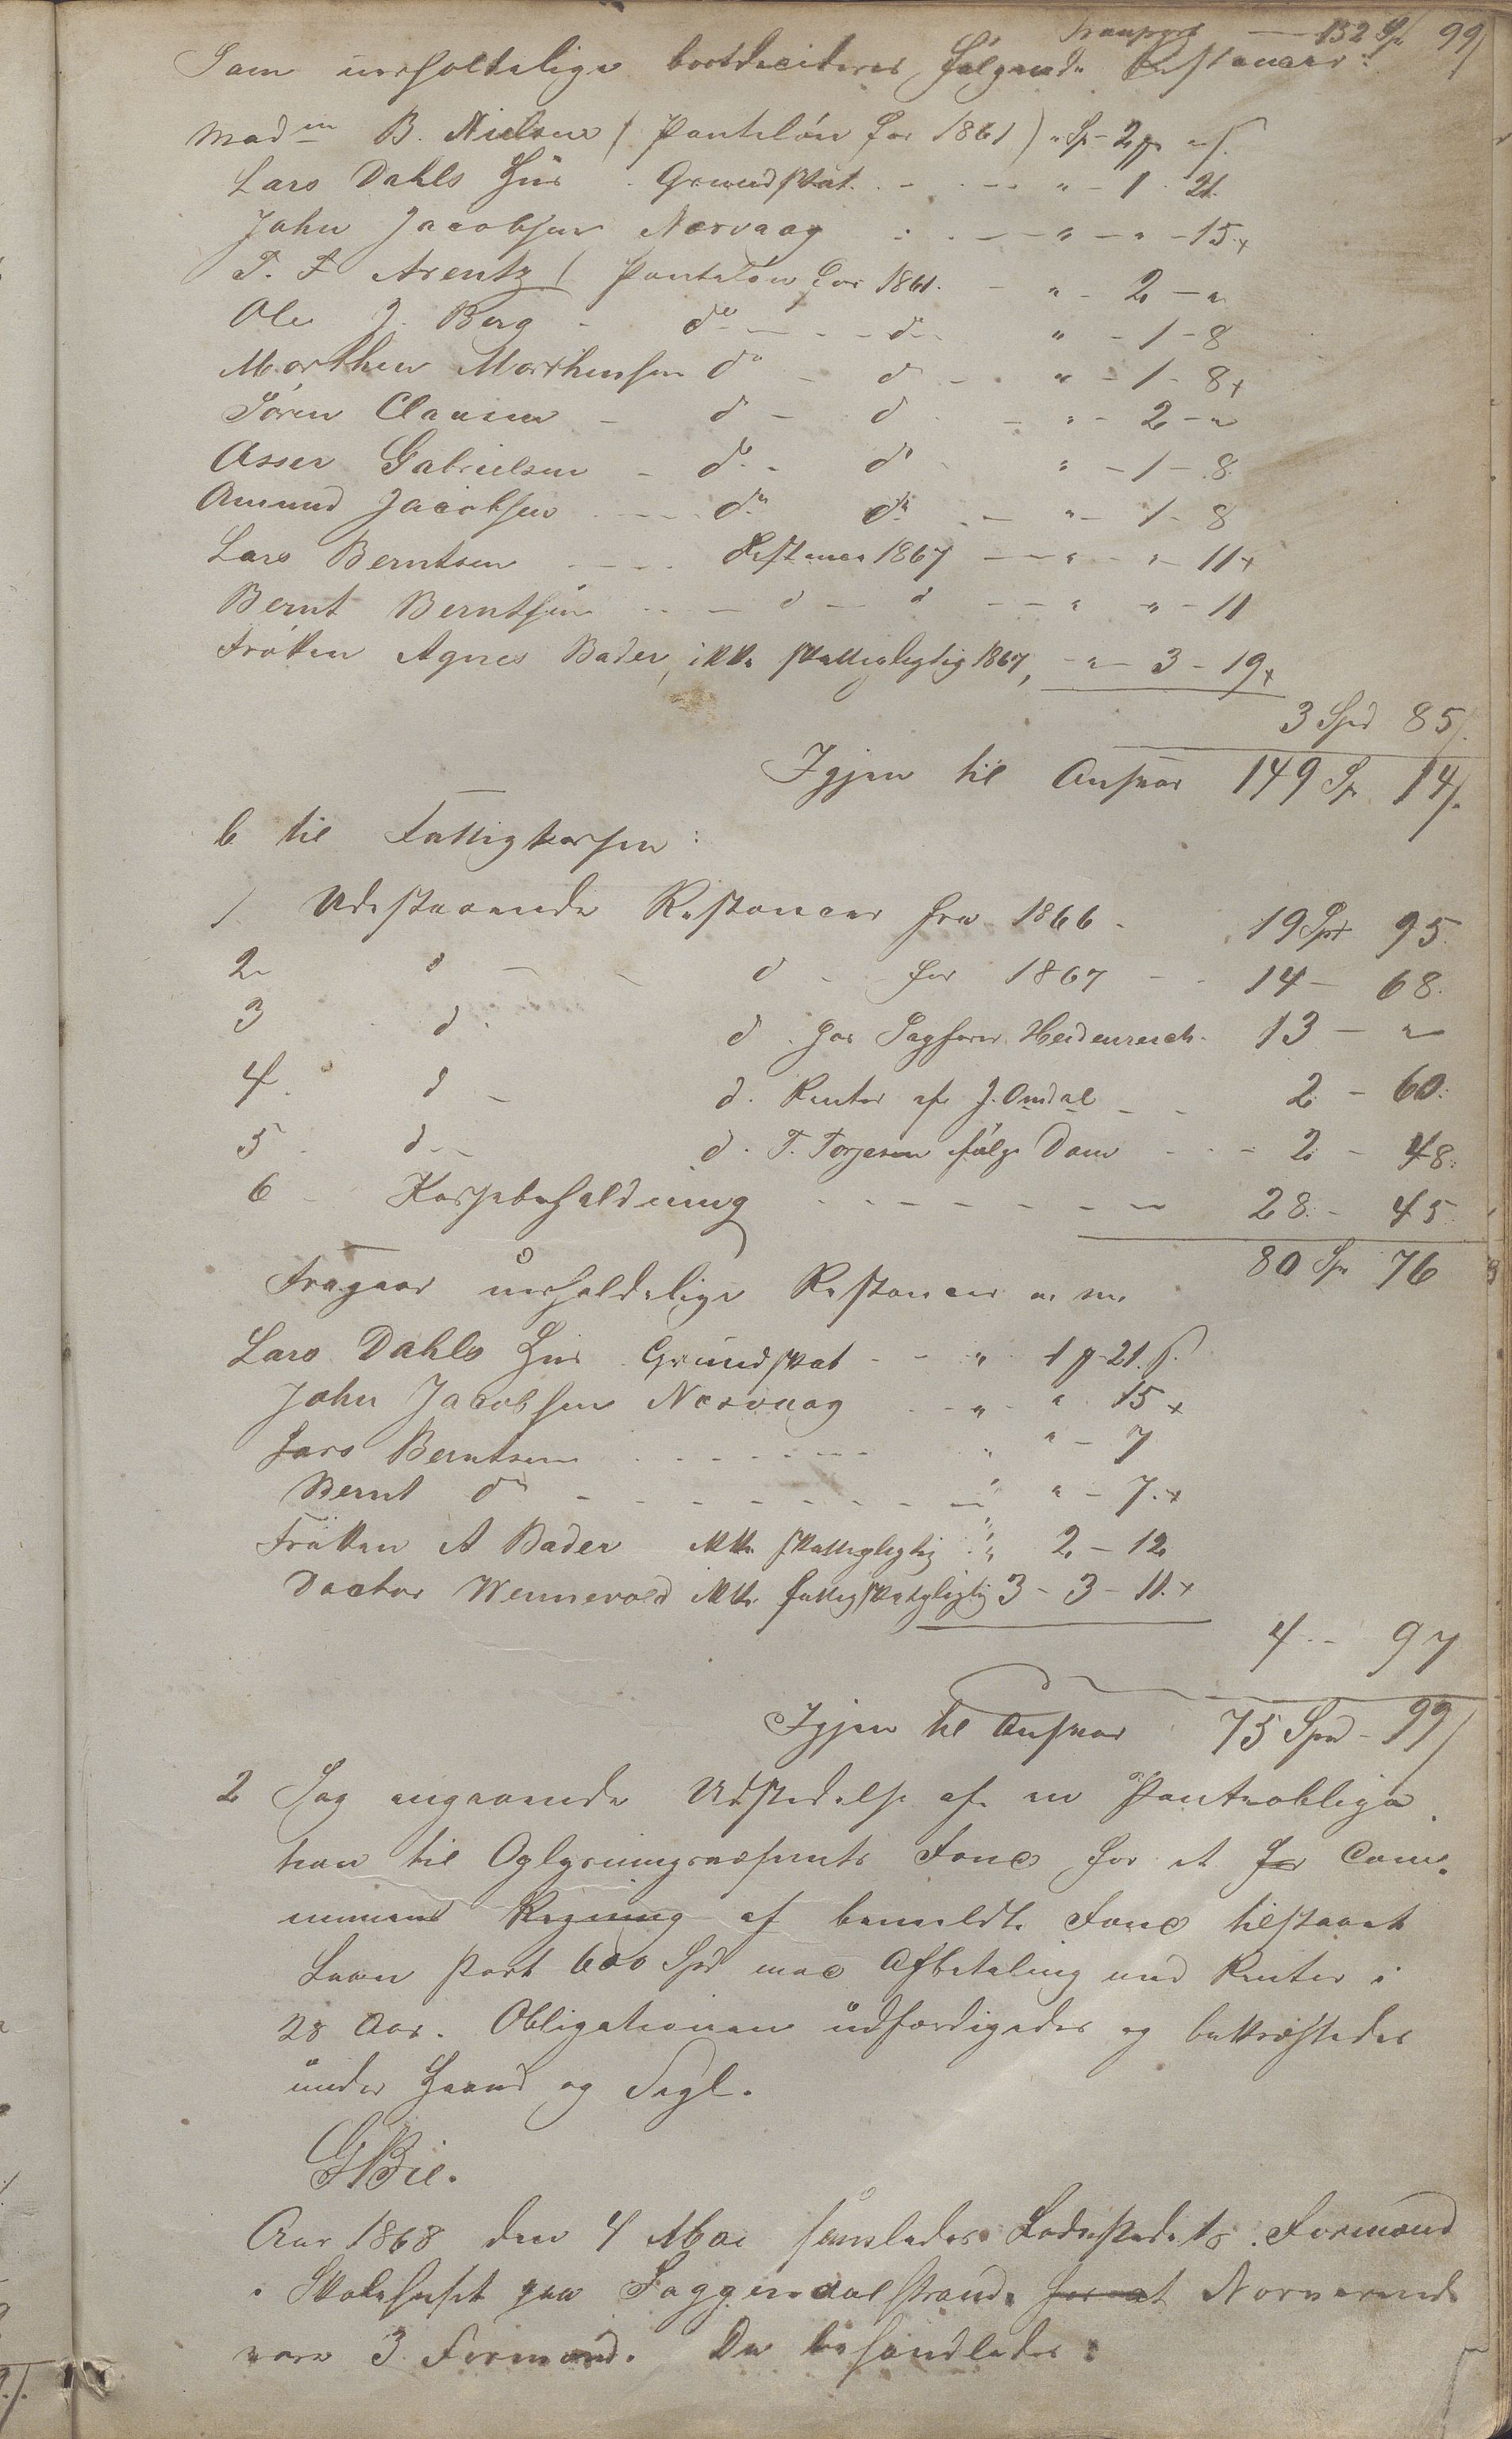 Transport — 152 Sp 99 s
Som uerholdelige bortdecideres følgende Restancer:
Madm B. Nielsen (Panteløn for 1861) " Sp - 2 " s.
Lars Dahls Huus. Grundskat. . - . - - " - 1 . 21.
John Jacobsen Nærvaag . . - - " - " - 15.+
T. F. Arentz (Panteløn for 1861. - " - 2 - "
Ole J. Berg - do - - - do - " - 1 - 8
Morthen Morthensen do - d - . " - 1 - 8+
Sören Clausen - d - d - " - 2 - "
Asser Gabrielsen - do - do - " - 1 - 8.
Amund Jacobsen . - - do do . - " - 1 - 8
Lars Berntsen - - - . Restance 1867 - - " - " - 11+
Bernt Berntsen - - - d - d - - " " - 11
Frøken Agnes Bader, ikke skattepligtig 1867, - " - 3 - 19+
3 Spd 85 s.
Igjen til Ansvar 149 Sp 14 s.
b til Fattigkassen:
1. Udestaaende Restancer fra 1866 - 19 Spd 95.
2 d - - d - for 1867 - - 14 - 68.
3 d . d . hos Sagfører Heidenreich - 13 - "
4. d - d . Renter af J. Omdal - - 2 - 60.
5 d - - d . T. Torjesen følge Dom - - - 2 - 48.
6 - Kassebeholdning - - - - - - - 28. - 45.
80 Sp 76
Fragaar uerholdelige Restancer m. m.
Lars Dahls Huus. Grundskat - - " 1 - 21 s.
John Jacobsen Nærvaag . - " - " 15+
Lars Berntsen . - - - - - - " " - 7
Bernt do - - - - - - - - " " - 7.+
Frøken A Bader ikke skattepligtig . " 2 - 12
Doctor Wennevold ikke fattigskatpligtig 3 - 3 - 11.+
4 - - 97
Igjen til Ansvar 75 Spd - 99 s
2 Sag angaaende Udstedelse af en Panteobliga
tion til Oplysningsvæsenets Fond for et for Com-
munens Regning af bemeldte Fond tilstaaet
Laan stort 600 Spd mod Afbetaling med Renter i
28 Aar. Obligationen udfærdigedes og bekræftedes
under Haand og Segl.
G Bie.
Aar 1868 den 4 Mai samledes Ladestedets Formænd
i Skolehuset paa Soggendalstrand. for at Nærværende
vare 3 Formænd. Da behandledes: